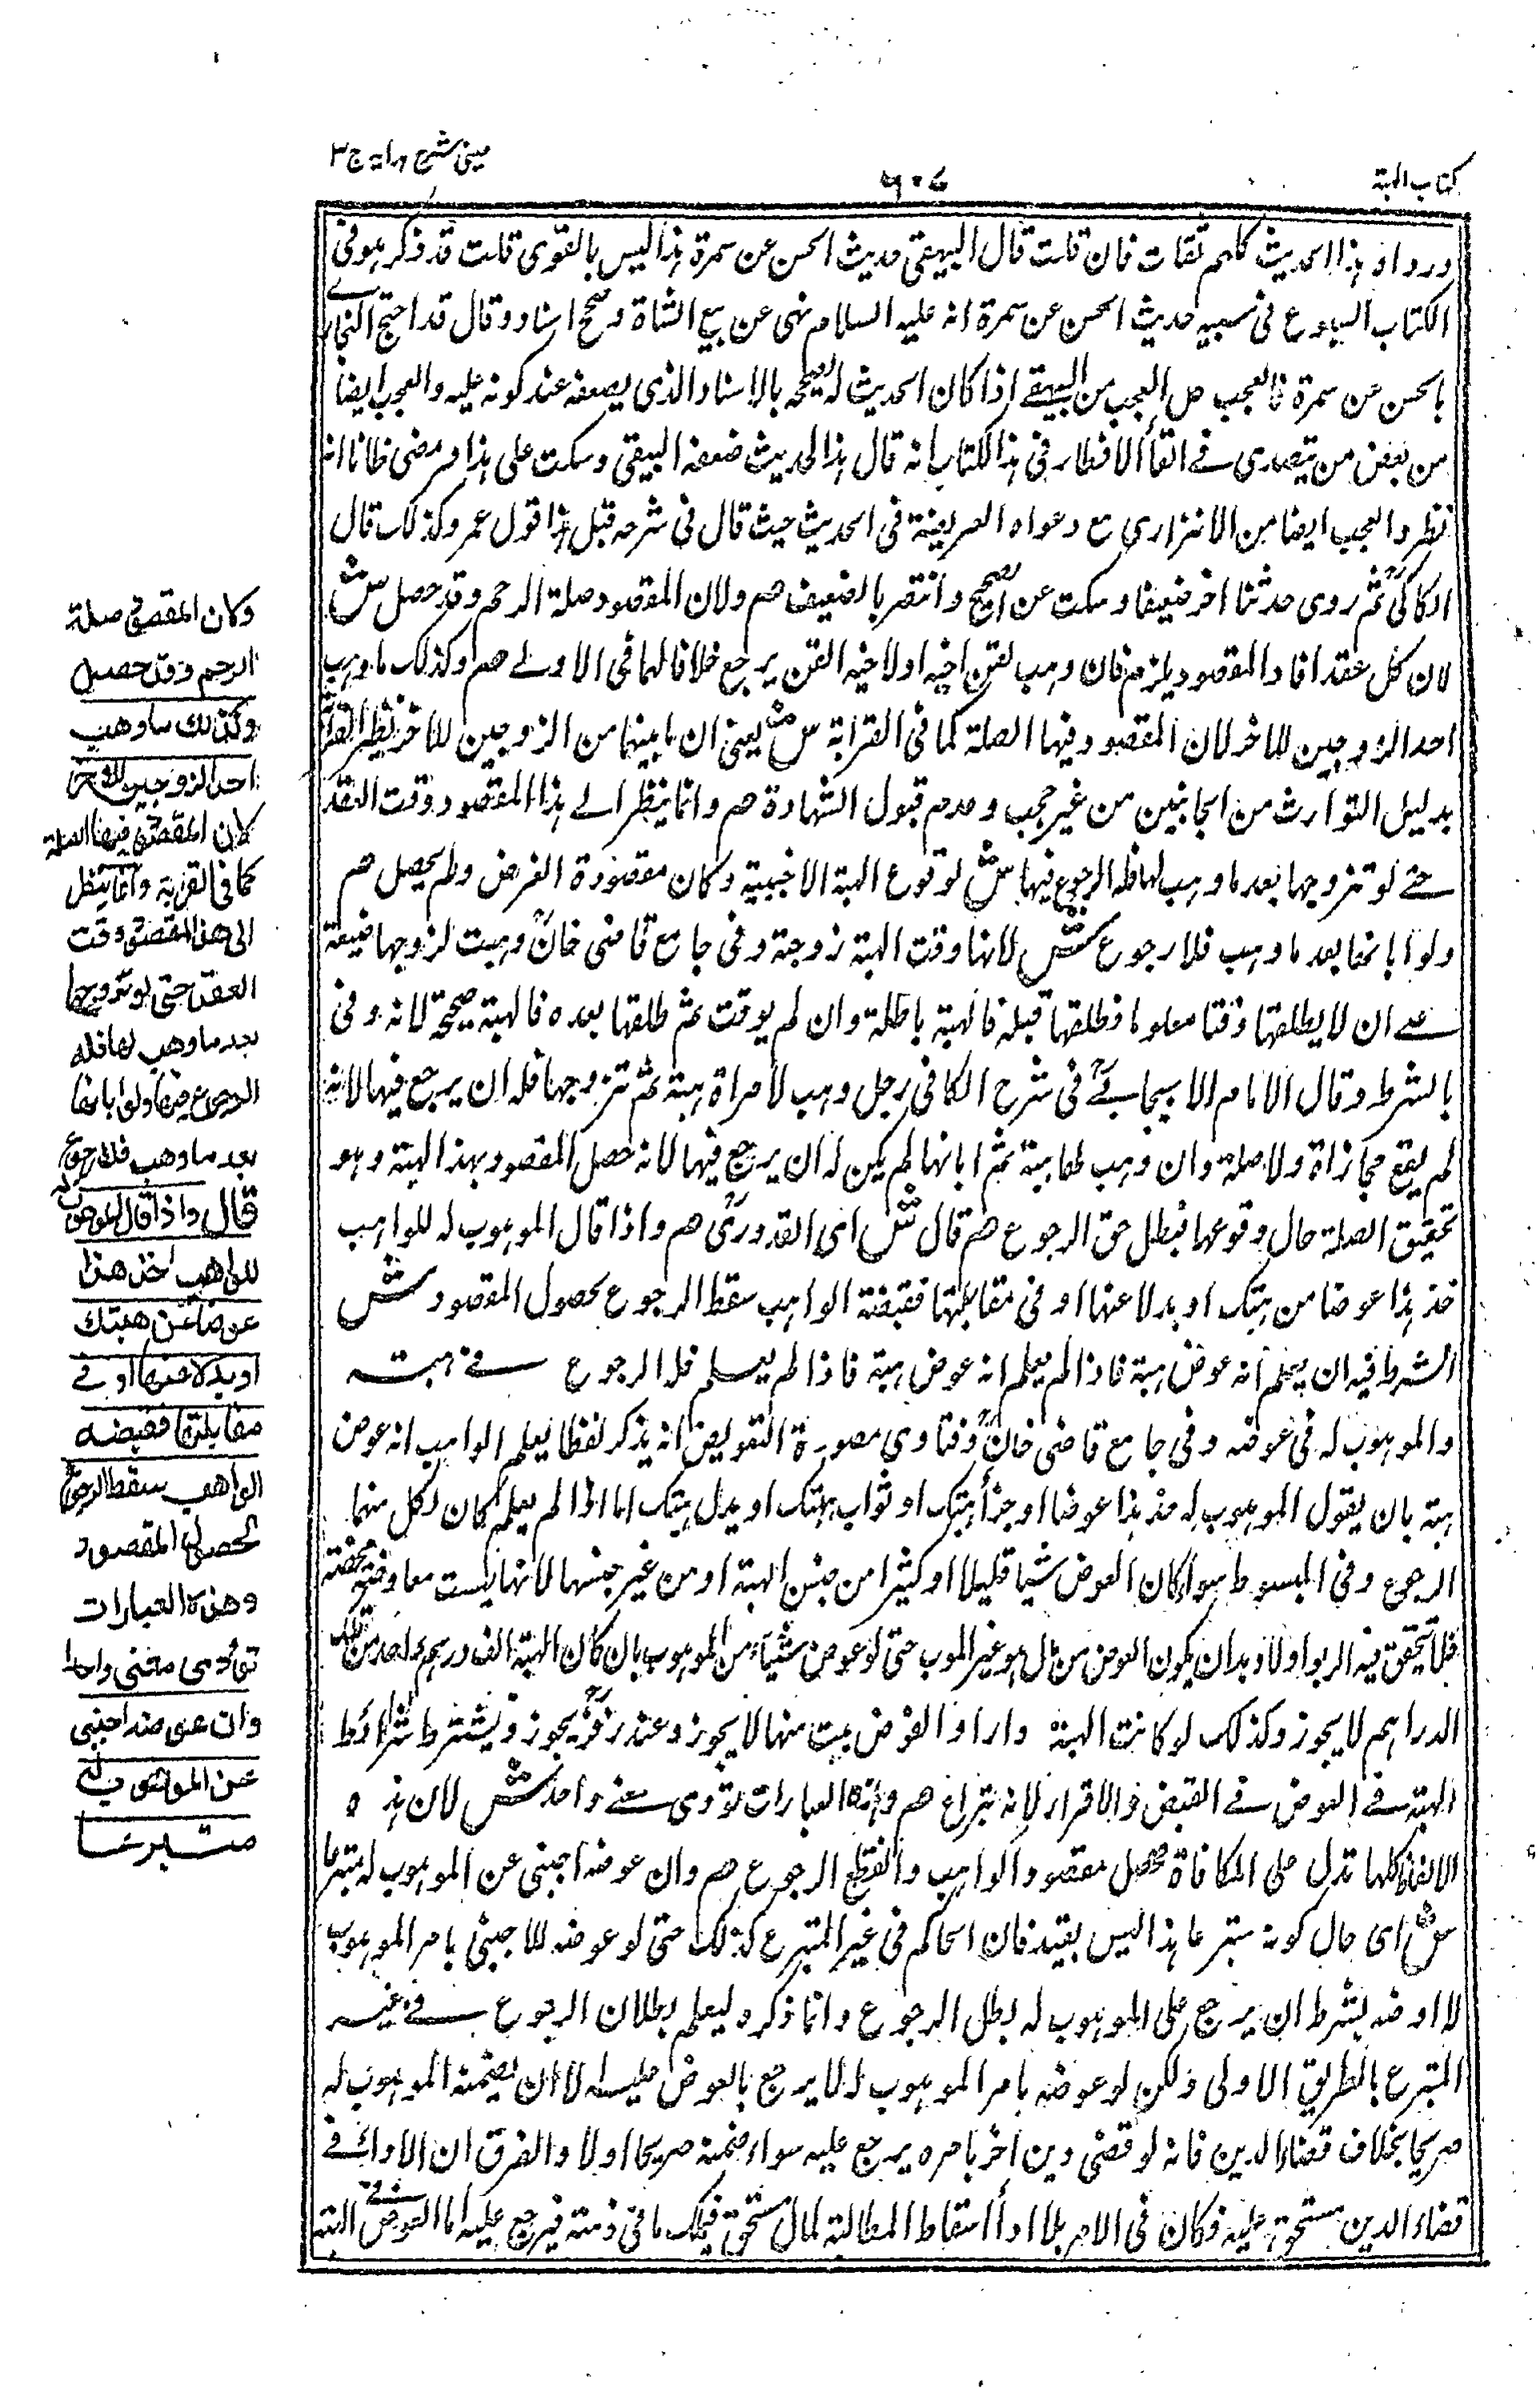 كتاب الهبة
٦٠٧
عینی شرح ہدایہ ج ٣
ورواة ہذا الحدیث کلہم ثقات فان قلت قال البیہقی حدیث الحسن عن سمرة ہذا لیس بالقوی قلت قد ذکر ہو فی
الکتاب البیوع فی حدیث الحسن عن سمرة انہ علیہ السلام نہی عن بیع الشاة وصحح اسنادہ وقال قد احتج البخاری
بالحسن عن سمرة فالعجب کل العجب من البیہقے اذا کان الحدیث لہ یصححہ بالاسناد الذی یضعفہ عند کونہ علیہ والعجب ایضا
من بعض من یتصدی فے الاقطار فی ہذا الکتاب انہ قال ہذا الحدیث ضعفہ البیہقی وسکت علی ہذا ومضی ظانا انہ
نظر والعجب ایضا من الاتزاری مع دعواہ العریضة فی الحدیث حیث قال فی شرحہ قبل ہذا قول عمر وکذلک قال
الکاکیؒ ثم روی حدثنا اخر ضعیفا وسکت عن الصحیح وانتصر بالضعیف ھم ولان المقصود صلة الرحم وقد حصل ش
لان کل عقد افاد المقصود یلزم فان وہب لقن اخیہ او لاخیہ القن یرجع خلافا لہما فی الاولے ھم وکذلک ما وہب
احد الزوجین للاخر لان المقصود فیہا الصلة کما فی القرابة ش یعنی ان ما بینہما من الزوجین للاخر نظیر القرابة
بدلیل التوارث من الجانبین من غیر حجب وعدم قبول الشہادة ھم وانما ینظر الے ہذا المقصود وقت العقد
حتے لو تزوجہا بعد ما وہب لہا فلہ الرجوع فیہا ش لوقوع الہبة الاجنبیة وکان مقصودہ العرض ولم یحصل ھم
ولو ابانہا بعد ما وہب فلا رجوع ش لانہا وقت الہبة زوجة وفی جامع قاضی خانؒ وہبت لزوجہا ضیعة
علے ان لا یطلقہا وقتا معلوما فطلقہا قبلہ فالہبة باطلة وان لم یوقت ثم طلقہا بعدہ فالہبة صحیحة لانہ وفی
بالشرط وقال الامام الاسبیجابیؒ فی شرح الکافی رجل وہب لامراة ہبة ثم تزوجہا فلہ ان یرجع فیہا لانہ
لم یقع مجازاة ولا صلة وان وہب لہا ہبة ثم ابانہا لم یکن لہ ان یرجع فیہا لانہ حصل المقصود بہذا الہبة وہو
تحقیق الصلة حال وقوعہا فبطل حق الرجوع ھم قال ش ای القدوریؒ ھم واذا قال الموہوب لہ للواہب
خذ ہذا عوضا من ہبتک او بدلا عنہا او فی مقابلتہا فقبضہ الواہب سقط الرجوع لحصول المقصود ش
الشرط فیہ ان یعلم انہ عوض ہبة فاذا لم یعلم انہ عوض ہبة فاذا لم یسلم فلہ الرجوع فے ہبتہ
والموہوب لہ فی عوضہ وفی جامع قاضی خانؒ وفتاوی صورة التعویض انہ یذکر لفظا یعلم الواہب انہ عوض
ہبتہ بان یقول الموہوب لہ خذ ہذا عوضا او جزأ ہبتک او ثواب ہبتک او بدل ہبتک اما اذا لم یعلم کان لکل منہما
الرجوع وفی المبسوط سواء کان العوض شیئا قلیلا او کثیرا من جنس الہبة او من غیر جنسہا لانہا لیست معاوضة محضة
فلا تحقق فیہ الربوا ولا بد ان یکون العوض من مال ہو غیر الموہوب حتی لو عوض شیئا من الموہوب بان کان الہبة الف درہم واحد من تلک
الدراہم لا یجوز وکذلک لو کانت الہبة دارا والعوض بیت منہا لا یجوز وعند زفرؒ یجوز ویشترط شرائط
الہبة فے العوض فے القبض والافراز لانہ تبرع ھم وہذہ العبارات تؤدی معنے واحد ش لان ہذہ
الالفاظ کلہا تدل علی المکافاة فحصل مقصود الواہب وانقطع الرجوع ھم وان عوضہ اجنبی عن الموہوب لہ متبرعا
ش ای حال کونہ متبرعا ہذا لیس بقید فان الحاکم فی غیر المتبرع کذلک حتی لو عوضہ للاجنبی بامر الموہوب
لہ او ضہ بشرط ان یرجع علی الموہوب لہ بطل الرجوع وانما ذکرہ لیعلم بطلان الرجوع فے غیر
المتبرع بالطریق الاولی ولکن لو عوضہ بامر الموہوب لہ لا یرجع بالعوض علیہ الا ان یضمنہ الموہوب لہ
صریحا بخلاف قضاء الدین فانہ لو قضی دین اخر بامرہ یرجع علیہ سواء ضمنہ صریحا او لا والفرق ان الاداء فے
قضاء الدین مستحق علیہ فکان فی الامر بالاداء اسقاط المطالبة لمال مستحق فیملک ما فی ذمتہ فیرجع علیہ اما العوض فے الہبة
وكان المقصود صلة
الرحم وقد حصل
وكذلك ما وهب
احد الزوجين للاخر
لان المقصود فيها الصلة
كما فى القرابة وانما ينظر
الى هذا المقصود وقت
العقد حتى لو تزوجها
بعد ما وهب لها فله
الرجوع فيها ولو ابانها
بعد ما وهب فلا رجوع
قال واذا قال الموهوب له
للواهب خذ هذا
عوضا عن هبتك
او بدلا عنها او فى
مقابلتها فقبضه
الواهب سقط الرجوع
لحصول المقصود
وهذه العبارات
تؤدى معنى واحدا
وان عوضه اجنبى
عن الموهوب له
متبرعا